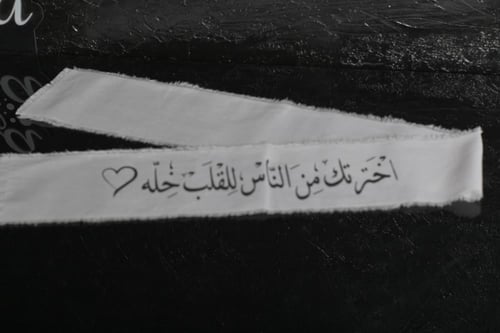 اخترتك من الناس للقلب خله ♡